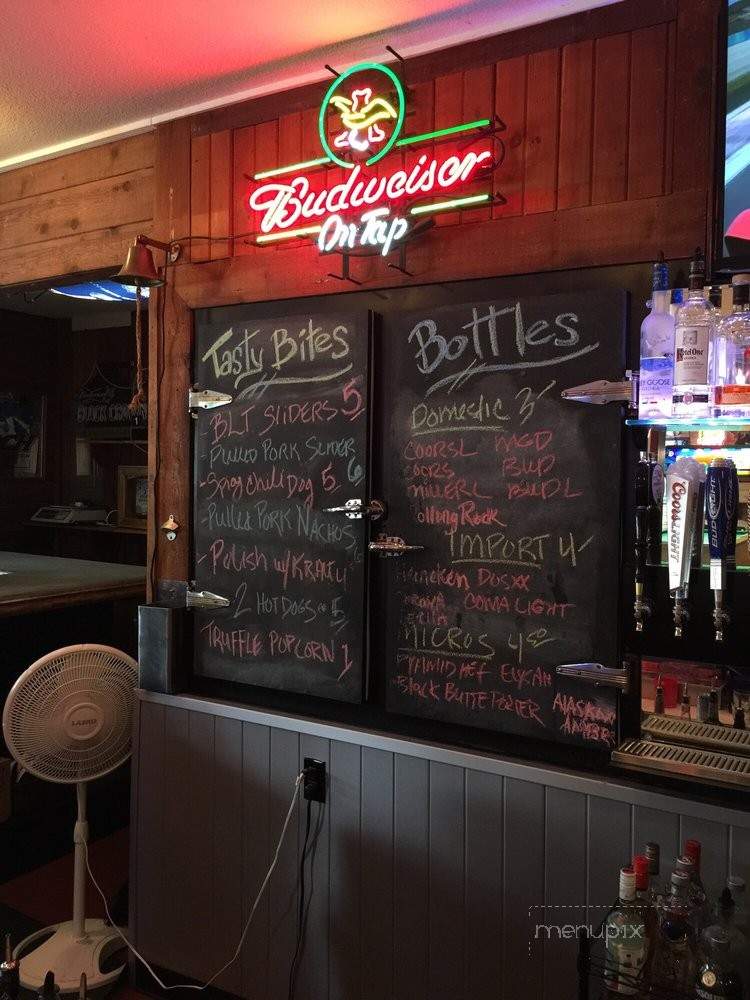 Budweiser
On Tap
Tasty Bites
- BLT SLIDERS 5
- PULLED PORK SLIDER 6
- Spicy Chili Dog 5
- PULLED PORK NACHOS
- POLISH W/KRAUT
2 HOT DOGS 5
TRUFFLE POPCORN 1
Bottles
DOMESTIC 3
COORSL MGD
COORS BUD
MILLERL BUDL
Rolling Rock
IMPORT 4
Heineken DOSXX
CORONA CORONA LIGHT
MICROS 4 50
PYRAMID HEF
Black BUTTE PORTER
ALASKAN
AMBER
GREY GOOSE
Ketel One
Coors LIGHT
BUD LIGHT
LASKO
menupix